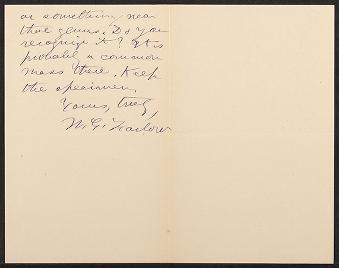 or something near
that genus. Do you
recognize it? It is
probabl a common
moss there. Keep
the specimen.
Yours, truly,
W. G. Farlow